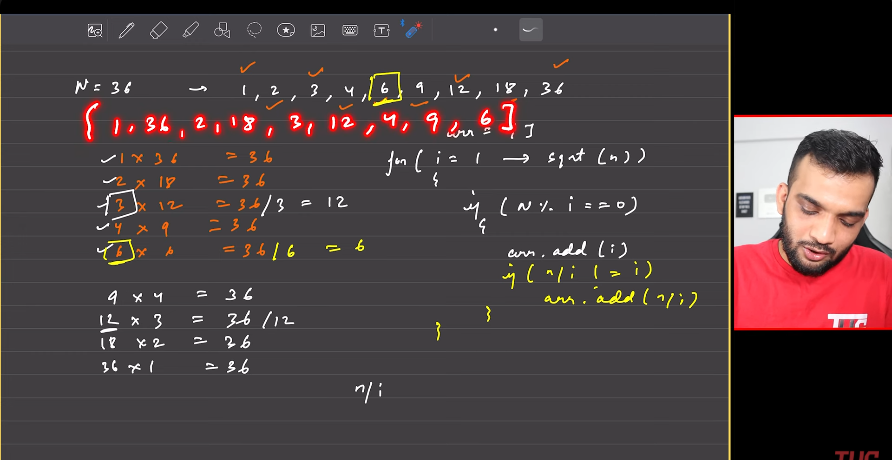 N = 36 → 1, 2, 3, 4, 6, 9, 12, 18, 36
[1, 36, 2, 18, 3, 12, 4, 9, 6]
arr = ]
1 x 36 = 36
2 x 18 = 36
3 x 12 = 36/3 = 12
4 x 9 = 36
6 x 6 = 36/6 = 6
9 x 4 = 36
12 x 3 = 36/12
18 x 2 = 36
36 x 1 = 36
for( i = 1 → sqrt(n))
{
if (N % i == 0)
{
arr.add(i)
if (n/i != i)
arr.add(n/i)
}
}
n/i
TUF